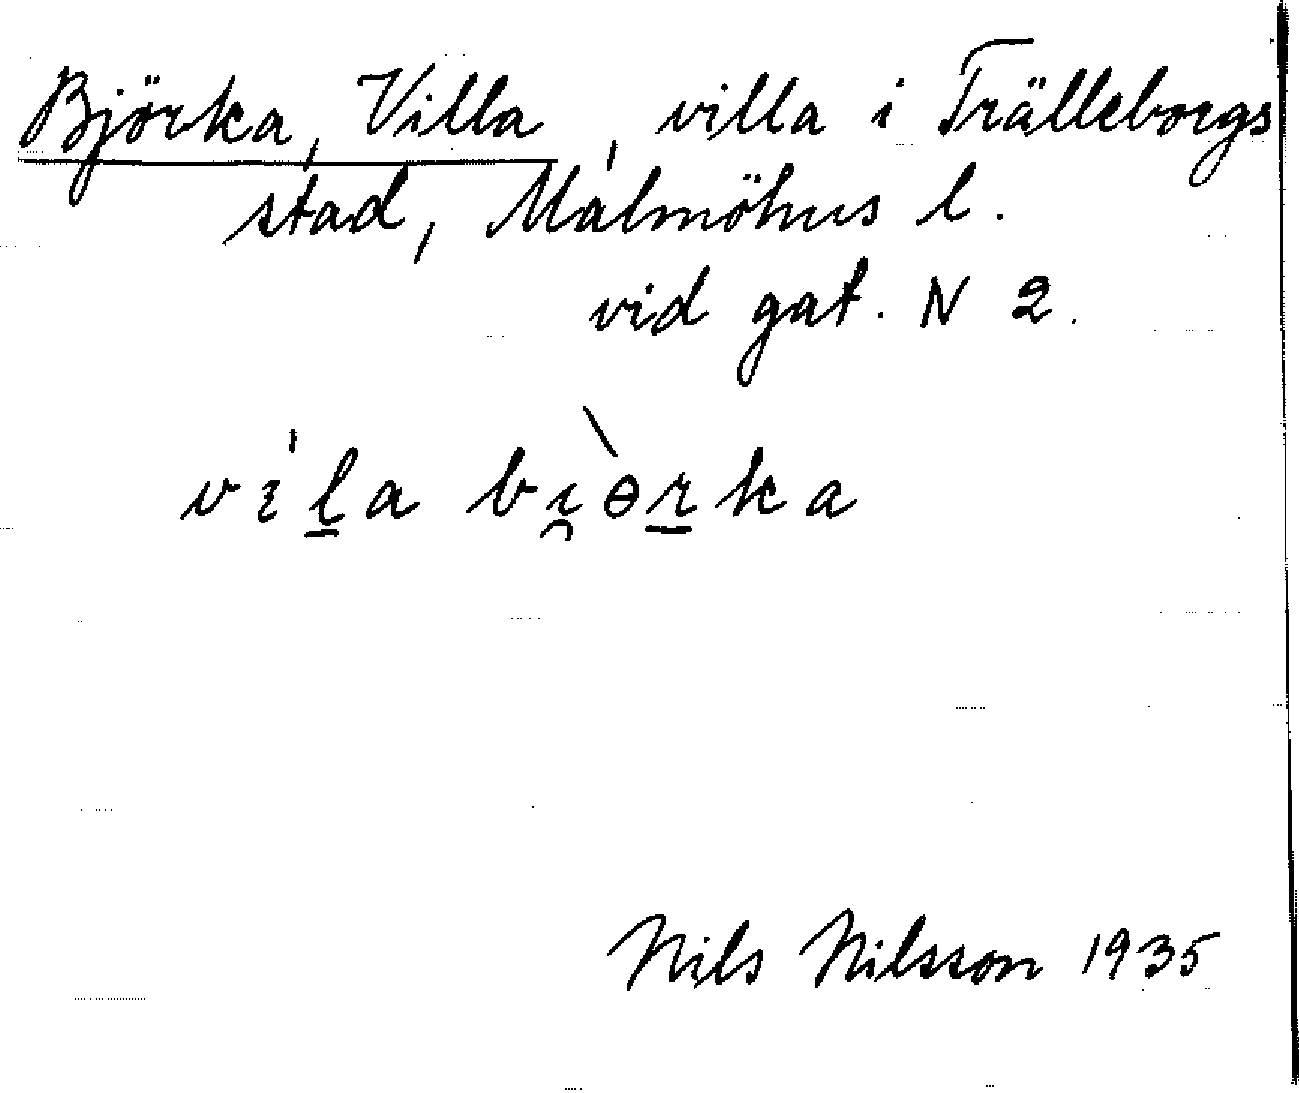 Björka, Villa, villa i Trälleborgs
stad, Malmöhus l.
vid gat. N 2.
vi̍l̠a bi̯ɵ̀r̠ka
Nils Nilsson 1935